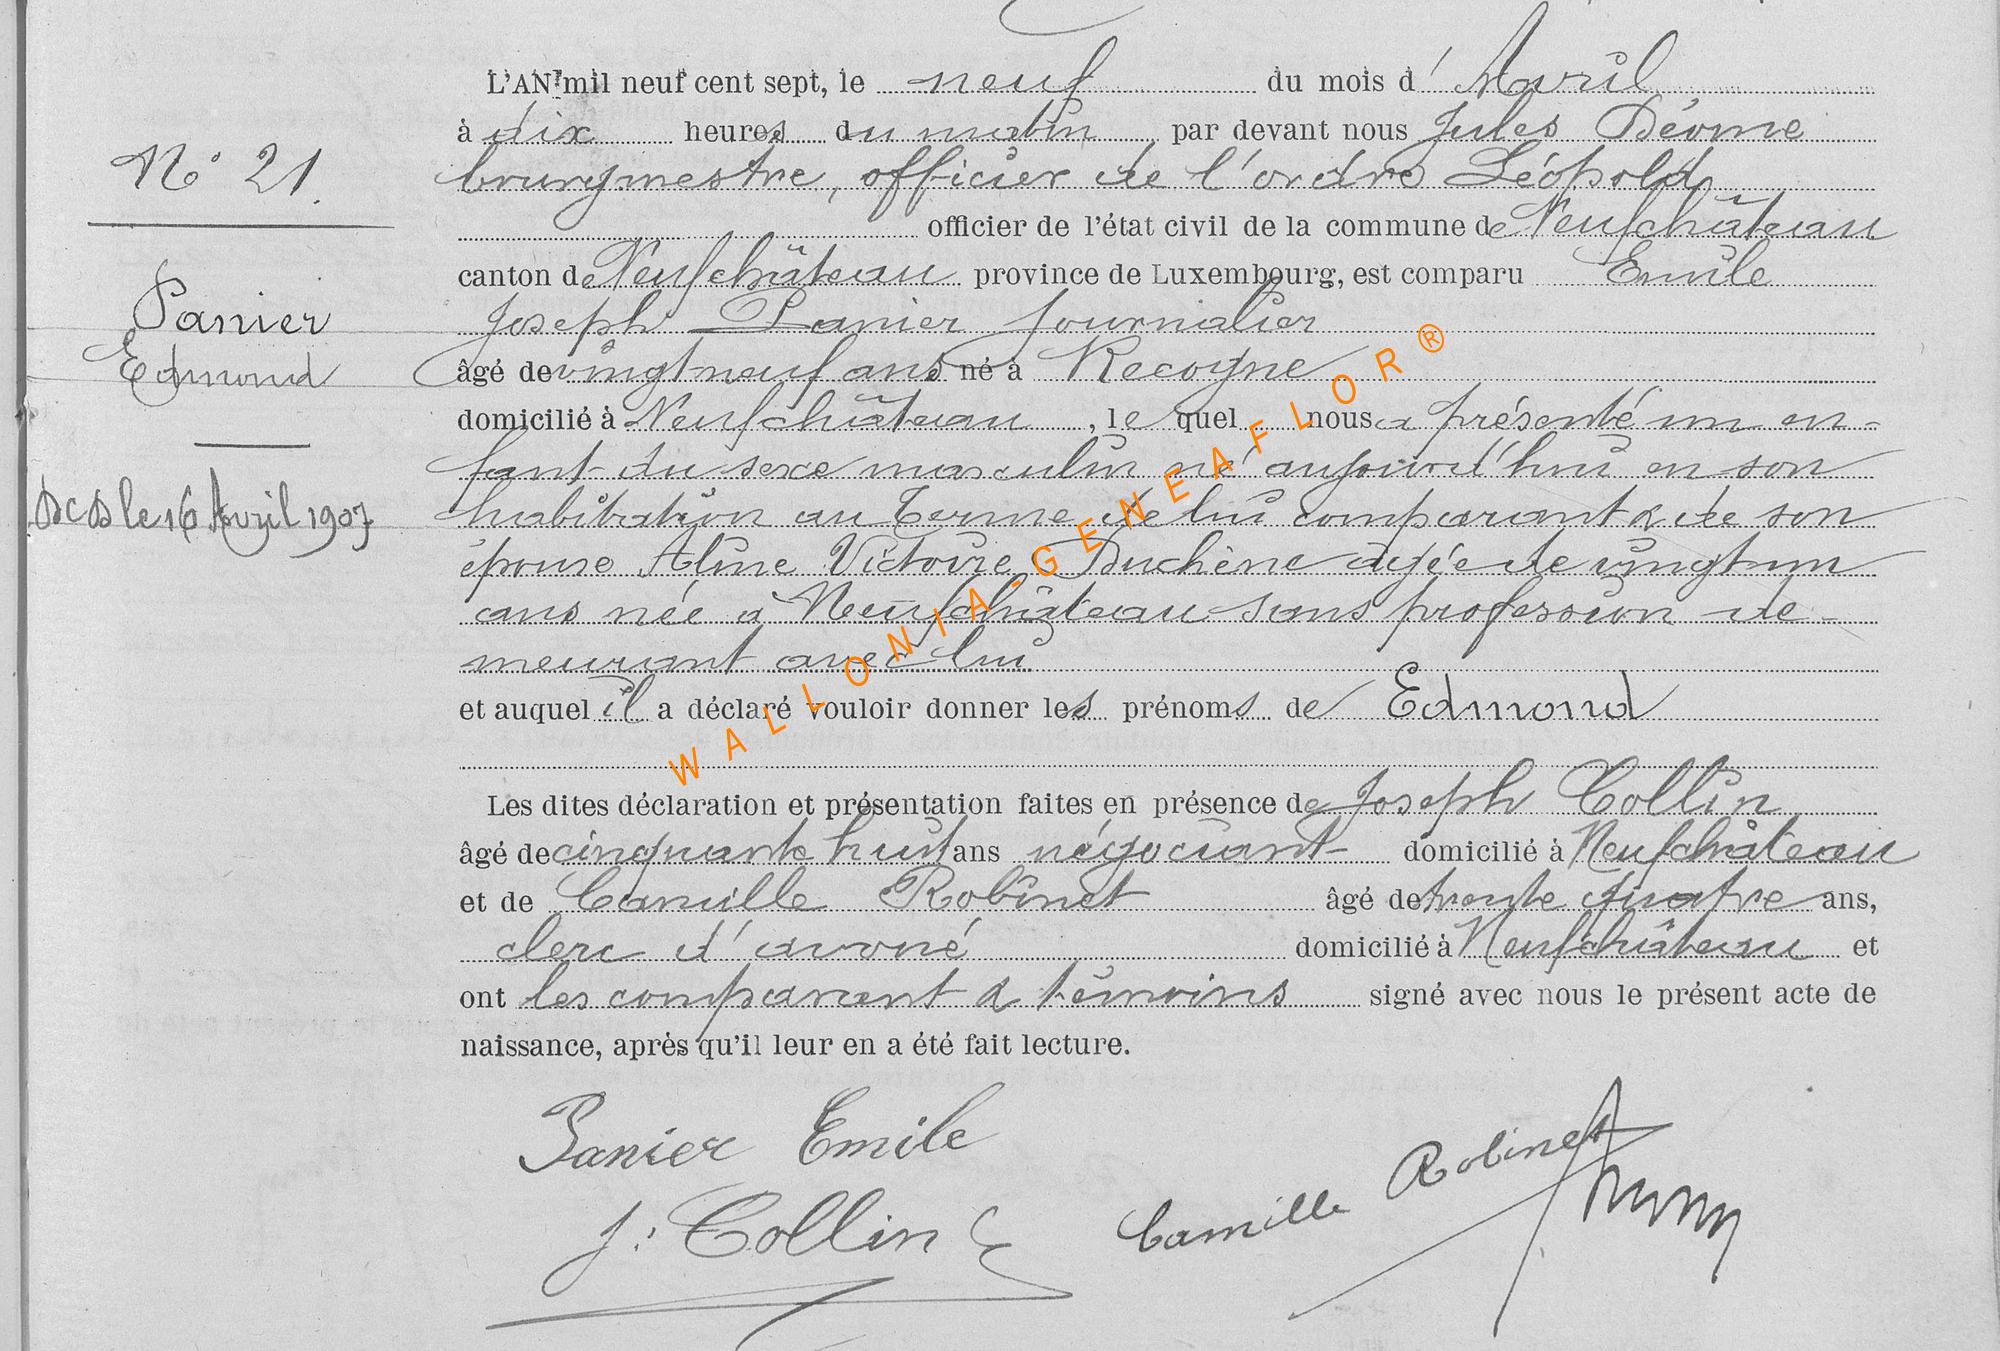 L'AN mil neuf cent sept, le neuf du mois d' Avril
à dix heures du matin par devant nous Jules
bourgmestre, officier de l'ordre Léopold
officier de l'état civil de la commune de Neufchâteau
canton de Neufchâteau province de Luxembourg, est comparu Emile
Joseph Panier journalier
âgé de vingt neuf ans né à Recogne
domicilié à Neufchâteau, le quel nous a présenté un en-
fant du sexe masculin né aujourd'hui en son
habitation au Terme de lui comparant & de son
épouse Aline Victoire Duchêne agée de vingt un
ans née à Neufchâteau sans profession de-
meurant avec lui
et auquel il a déclaré vouloir donner les prénoms de Edmond
Les dites déclaration et présentation faites en présence de Joseph Collin
âgé de cinquante huit ans négociant domicilié à Neufchâteau
et de Camille Robinet âgé de trente quatre ans,
clerc d'avoué domicilié à Neufchâteau et
ont les comparant & témoins signé avec nous le présent acte de
naissance, après qu'il leur en a été fait lecture.
Panier Emile
J. Collin
Camille Robinet
N° 21
Panier
Edmond
DCD le 16 Avril 1907
WALLONIA-GENEAFLOR®